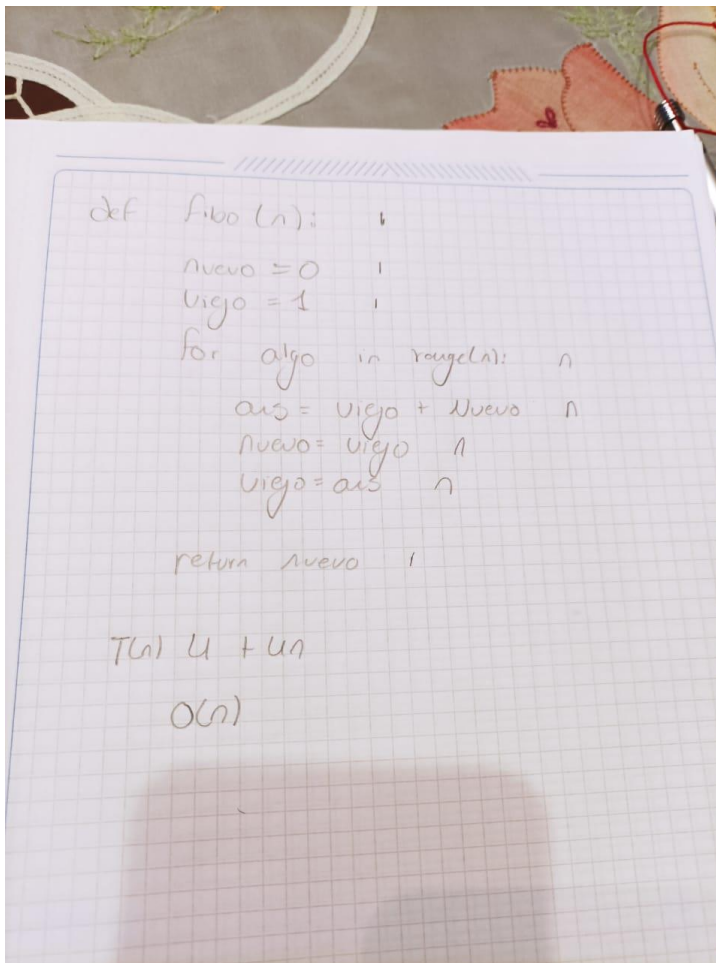 def fibo (n): 1
nuevo = 0 1
viejo = 1 1
for algo in range(n): n
aus = viejo + Nuevo n
nuevo = viejo n
viejo = aus n
return nuevo 1
T(n) 4 + 4n
O(n)